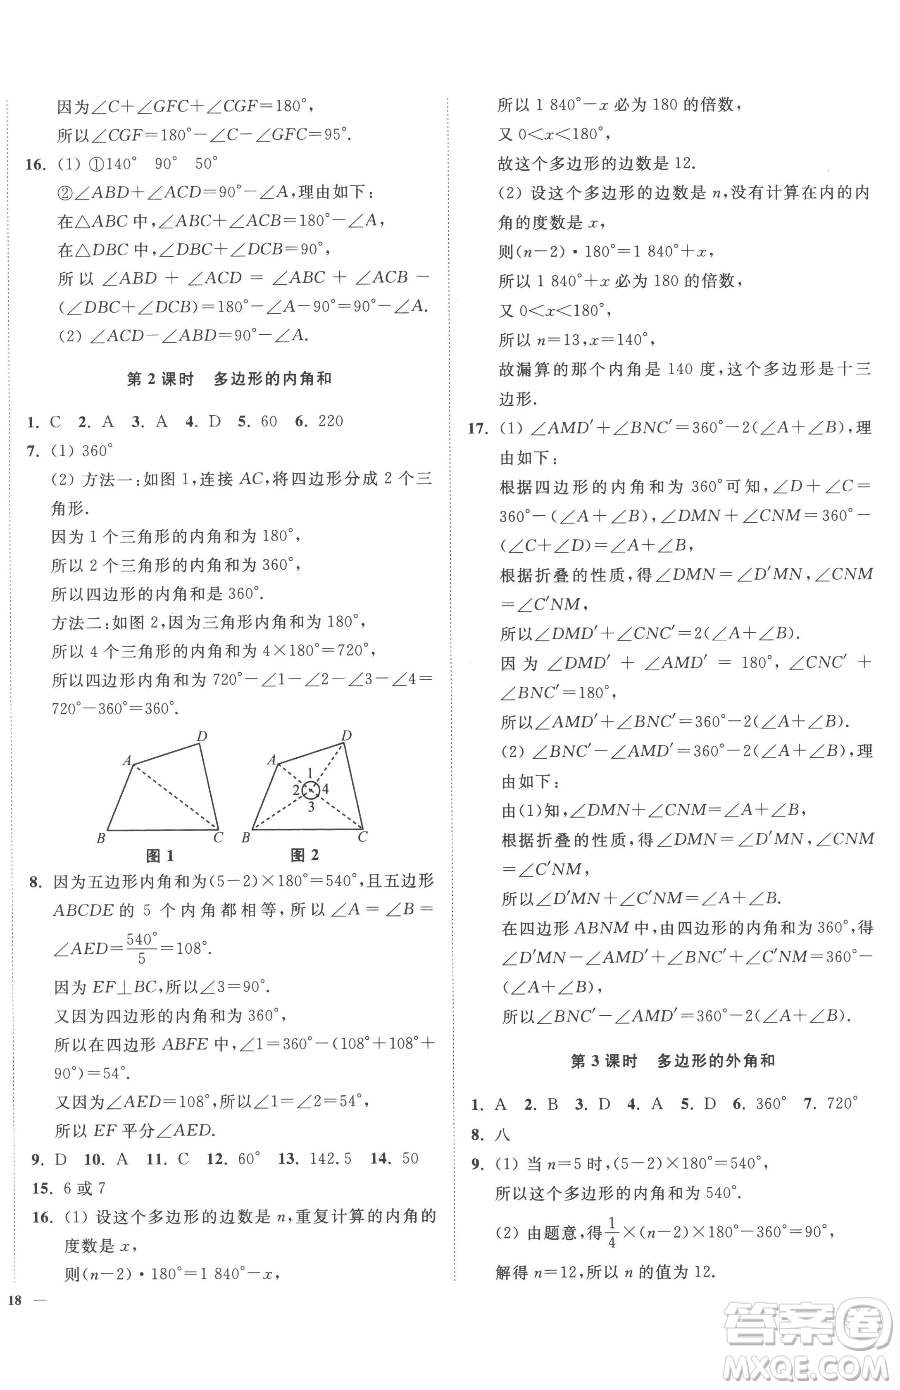 因为∠C+∠GFC+∠CGF=180°,
所以∠CGF=180°-∠C-∠GFC=95°.
16. (1) ①140° 90° 50°
②∠ABD+∠ACD=90°-∠A,理由如下:
在△ABC中,∠ABC+∠ACB=180°-∠A,
在△DBC中,∠DBC+∠DCB=90°,
所以∠ABD+∠ACD=∠ABC+∠ACB-
(∠DBC+∠DCB)=180°-∠A-90°=90°-∠A.
(2) ∠ACD-∠ABD=90°-∠A.
第2课时 多边形的内角和
1. C 2. A 3. A 4. D 5. 60 6. 220
7. (1) 360°
(2) 方法一:如图1,连接AC,将四边形分成2个三
角形.
因为1个三角形的内角和为180°,
所以2个三角形的内角和为360°,
所以四边形内角和是360°.
方法二:如图2,因为三角形内角和为180°,
所以4个三角形的内角和为4×180°=720°,
所以四边形内角和为720°-∠1-∠2-∠3-∠4=
720°-360°=360°.
A D B C
图1
A D B C 1 2 3 4
图2
8. 因为五边形内角和为(5-2)×180°=540°,且五边形
ABCDE的5个内角都相等,所以∠A=∠B=
∠AED=540°/5=108°.
因为EF⊥BC,所以∠3=90°.
又因为四边形的内角和为360°,
所以在四边形ABFE中,∠1=360°-(108°+108°+
90°)=54°.
又因为∠AED=108°,所以∠1=∠2=54°,
所以EF平分∠AED.
9. D 10. A 11. C 12. 60° 13. 142.5 14. 50
15. 6或7
16. (1) 设这个多边形的边数是n,重复计算的内角的
度数是x,
则(n-2)·180°=1 840°-x,
18
所以1 840°-x必为180的倍数,
又0<x<180°,
故这个多边形的边数是12.
(2) 设这个多边形的边数是n,没有计算在内的内
角的度数是x,
则(n-2)·180°=1 840°+x,
所以1 840°+x必为180的倍数,
又0<x<180°,
所以n=13,x=140°,
故漏算的内角是140°,这个多边形是十三
边形.
17. (1) ∠AMD′+∠BNC′=360°-2(∠A+∠B),理
由如下:
根据四边形的内角和为360°可知,∠D+∠C=
360°-(∠A+∠B),∠DMN+∠CNM=360°-
(∠C+∠D)=∠A+∠B,
根据折叠的性质,得∠DMN=∠D′MN,∠CNM
=∠C′NM,
所以∠DMD′+∠CNC′=2(∠A+∠B).
因为∠DMD′+∠AMD′=180°,∠CNC′+
∠BNC′=180°,
所以∠AMD′+∠BNC′=360°-2(∠A+∠B).
(2) ∠BNC′-∠AMD′=360°-2(∠A+∠B),理
由如下:
由(1)知,∠DMN+∠CNM=∠A+∠B,
根据折叠的性质,得∠DMN=∠D′MN,∠CNM
=∠C′NM,
所以∠D′MN+∠C′NM=∠A+∠B.
在四边形ABNM中,由四边形的内角和为360°,得
∠D′MN-∠AMD′+∠BNC′+∠C′NM+∠A+
∠B=360°,
所以∠BNC′-∠AMD′=360°-2(∠A+∠B).
第3课时 多边形的外角和
1. A 2. B 3. D 4. A 5. D 6. 360° 7. 720°
8. 八
9. (1) 当n=5时,(5-2)×180°=540°,
所以这个多边形的内角和为540°.
(2) 由题意,得1/4×(n-2)×180°-360°=90°,
解得n=12,所以n的值为12.
答案圈
MXQE.COM